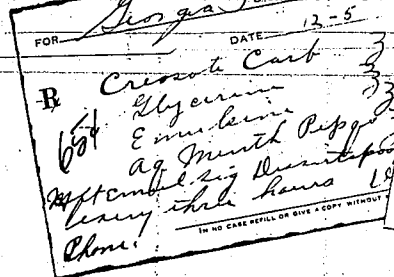 Georgia
FOR DATE 12-5
℞ Creosote Carb
Glycerine
65¢ Emulsine
aq Menth Pip qs
M ft emul. sig Dessertspoon
every three hours
Phone:
IN NO CASE REFILL OR GIVE A COPY WITHOUT